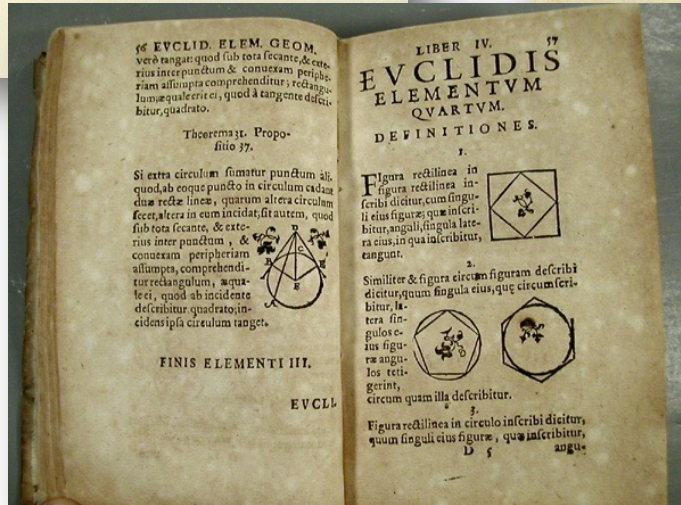 56 EVCLID. ELEM. GEOM.
verò tangat: quod sub tota secante, & exte-
rius inter punctum & conuexam periphe-
riam assumpta comprehenditur; rectangu-
lum, æquale erit ei, quod à tangente descri-
bitur, quadrato.
Theorema 31. Propo-
sitio 37.
Si extra circulum sumatur punctum ali-
quod, ab eoque puncto in circulum cadant
duæ rectæ lineæ, quarum altera circulum
secet, altera in eum incidat; sit autem, quod
sub tota secante, & exte-
rius inter punctum, &
conuexam peripheriam
assumpta, comprehendi-
tur rectangulum, æqua-
le ei, quod ab incidente
describitur quadrato; in-
cidens ipsa circulum tanget.
D
C
B
E
FINIS ELEMENTI III.
EVCLI.
LIBER IV. 57
EVCLIDIS
ELEMENTVM
QVARTVM.
DEFINITIONES.
1.
FIgura rectilinea in
figura rectilinea in-
scribi dicitur, cum singu-
li eius figuræ, quæ inscri-
bitur, anguli, singula late-
ra eius, in qua inscribitur,
tangunt.
2.
Similiter & figura circum figuram describi
dicitur, quum singula eius, quę circumscri-
bitur, la-
tera sin-
gulos e-
ius figu-
ræ angu-
los teti-
gerint,
circum quam illa describitur.
3.
Figura rectilinea in circulo inscribi dicitur,
quum singuli eius figuræ, quæ inscribitur,
D 5 angu-